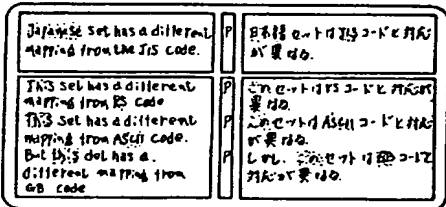 Japanese set has a different
mapping from the JIS code.
P
日本語セットはJISコードと対応
が異なる。
This set has a different
mapping from code
This set has a different
mapping from ASCII code.
But this has a
different mapping from
GB code
P
P
P
このセットは コードと対応が
異なる。
このセットはASCIIコードと対応
が異なる。
しかし、このセットは コードと
対応が異なる。